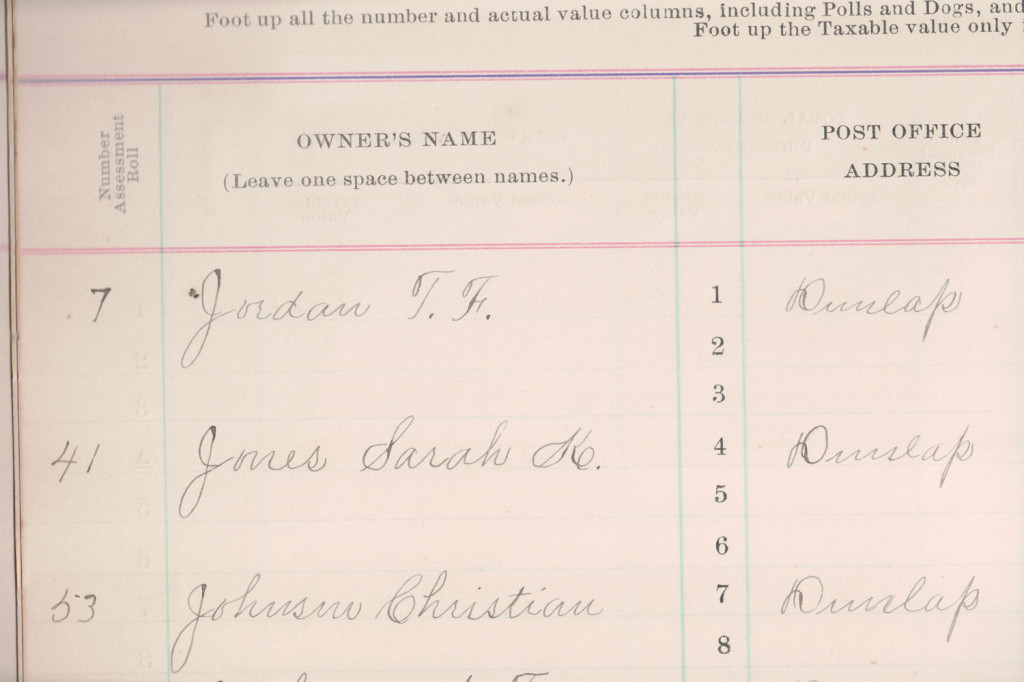 Foot up all the number and actual value columns, including Polls and Dogs, and
Foot up the Taxable value only
Number Assessment Roll
OWNER'S NAME
(Leave one space between names.)
POST OFFICE
ADDRESS
7 Jordan T. F. 1 Dunlap
2
3
41 Jones Sarah K. 4 Dunlap
5
6
53 Johnson Christian 7 Dunlap
8